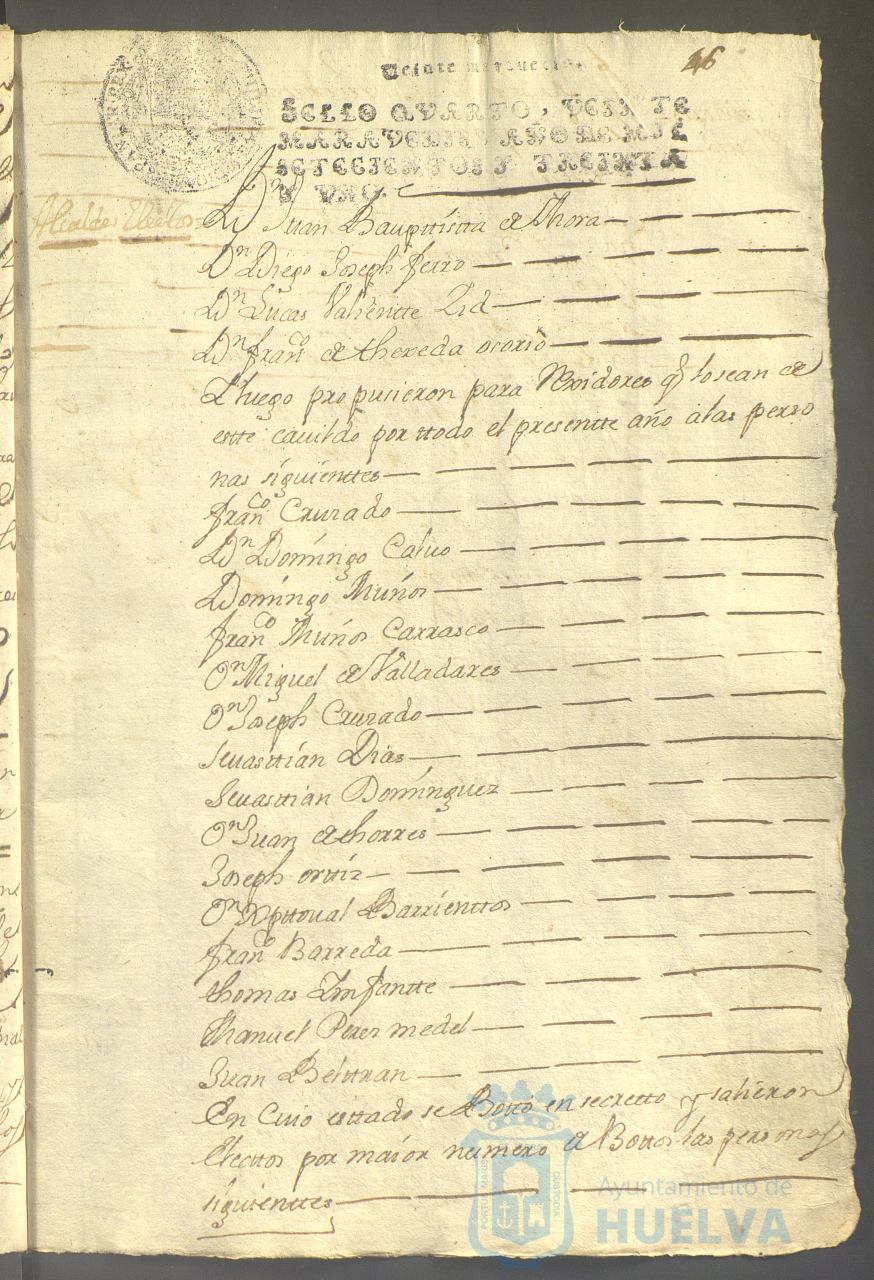 46
Veinte maravedis.
SELLO QVARTO, VEINTE
MARAVEDIS, AÑO DE MIL
SETECIENTOS Y TREINTA
Y VNO.
Alcaldes Electos
Dn Juan Bauptistta de Mora
Dn Diego Joseph ferro
Dn Lucas Valientte Zid
Dn franco de thexeda ocorio
Y luego propusieron para Rexidores q lo sean de
estte cauildo por ttodo el presentte año a las perso
nas siguienttes
franco Cruzado
Dn Domingo Caluo
Domingo Muños
franco Muños Carrasco
Dn Miguel de Valladares
Dn Joseph Cruzado
seuasttian Dias
Seuasttian Dominguez
Dn Juan de thorres
Joseph orttiz
Dn Xpttoual Barrienttos
franco Barreda
thomas Imfantte
Manuel Perez medel
Juan Belttran
En Cuio esttado se Botto en secretto y salieron
Electtos por maior numero de Bottos las personas
siguienttes
Ayuntamiento de
HUELVA